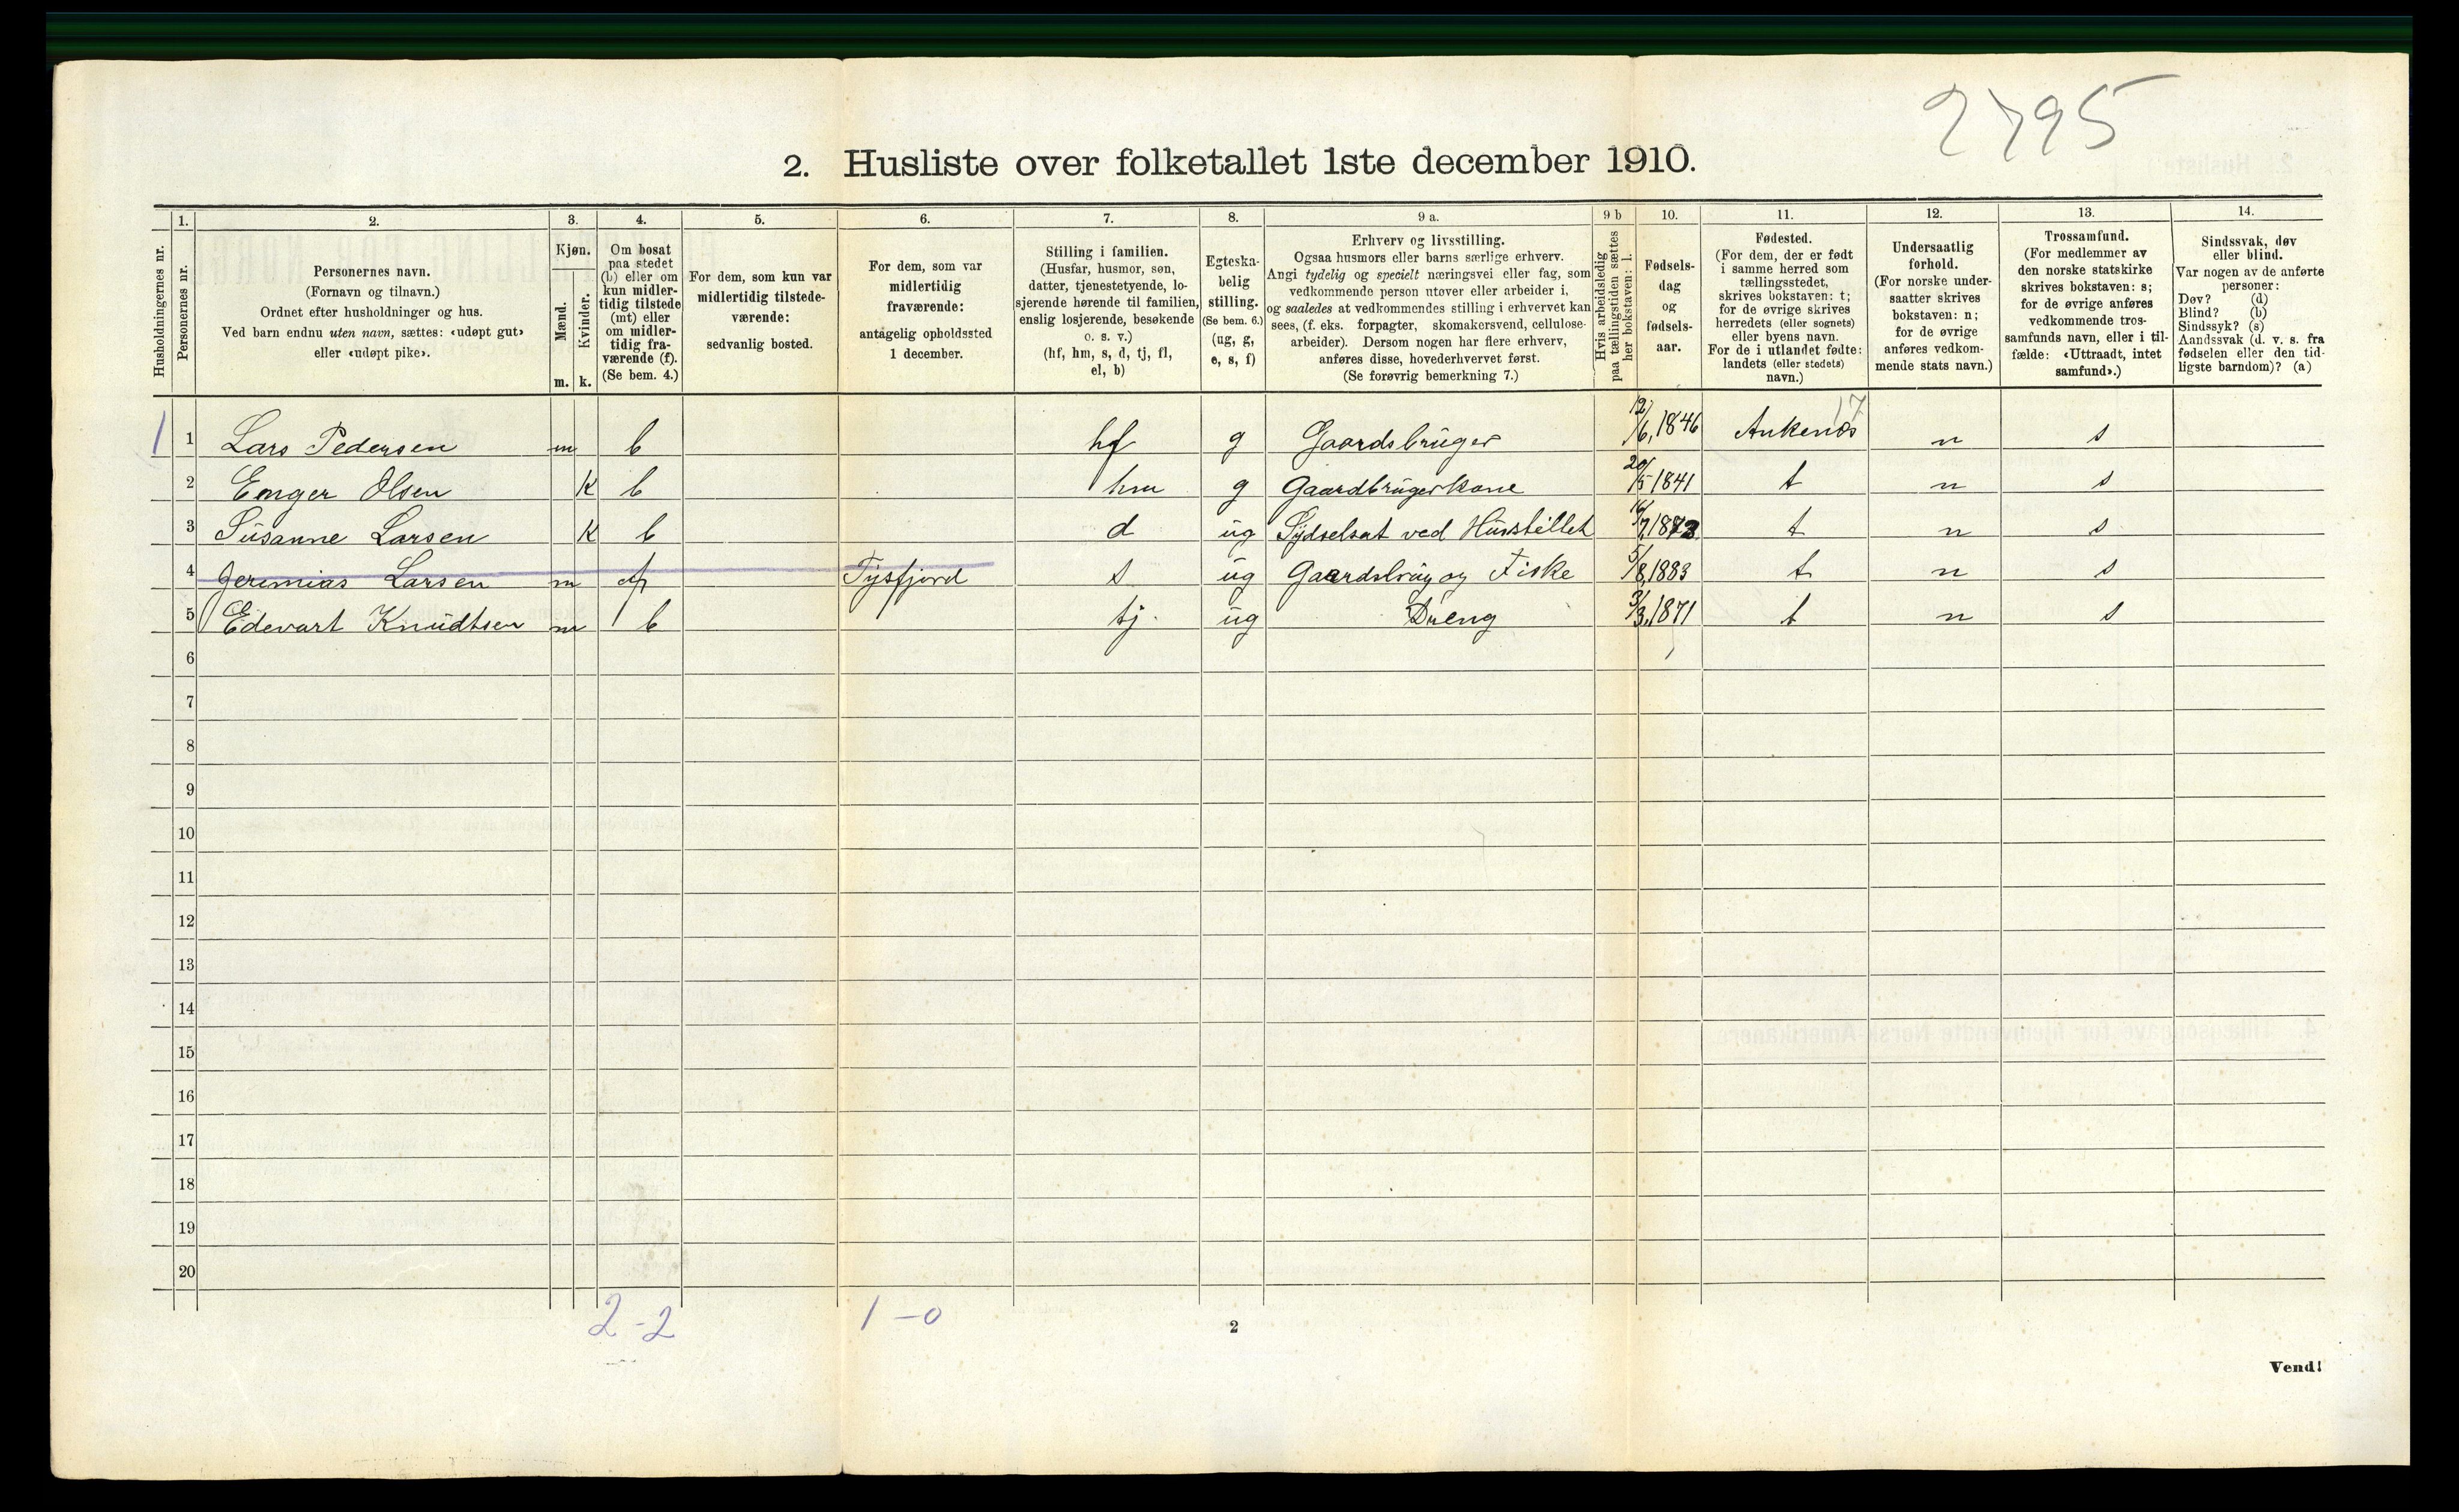 2795
2. Husliste over folketallet 1ste december 1910.
Husholdningernes nr.
1.
Personernes nr.
2.
Personernes navn.
(Fornavn og tilnavn.)
Ordnet efter husholdninger og hus.
Ved barn endnu uten navn, sættes: «udøpt gut»
eller «udøpt pike».
3.
Kjøn.
Mænd.
Kvinder.
m. k.
4.
Om bosat
paa stedet
(b) eller om
kun midler-
tidig tilstede
(mt) eller
om midler-
tidig fra-
værende (f).
(Se bem. 4.)
5.
For dem, som kun var
midlertidig tilstede-
værende:
sedvanlig bosted.
6.
For dem, som var
midlertidig
fraværende:
antagelig opholdssted
1 december.
7.
Stilling i familien.
(Husfar, husmor, søn,
datter, tjenestetyende, lo-
sjerende hørende til familien,
enslig losjerende, besøkende
o. s. v.)
(hf, hm, s, d, tj, fl,
el, b)
8.
Egteska-
belig
stilling.
(Se bem. 6.)
(ug, g,
e, s, f)
9 a.
Erhverv og livsstilling.
Ogsaa husmors eller barns særlige erhverv.
Angi tydelig og specielt næringsvei eller fag, som
vedkommende person utøver eller arbeider i,
og saaledes at vedkommendes stilling i erhvervet kan
sees, (f. eks. forpagter, skomakersvend, cellulose-
arbeider). Dersom nogen har flere erhverv,
anføres disse, hovederhvervet først.
(Se forøvrig bemerkning 7.)
9 b
Hvis arbeidsledig
paa tællingstiden sættes
her bokstaven: l.
10.
Fødsels-
dag
og
fødsels-
aar.
11.
Fødested.
(For dem, der er født
i samme herred som
tællingsstedet,
skrives bokstaven: t;
for de øvrige skrives
herredets (eller sognets)
eller byens navn.
For de i utlandet fødte:
landets (eller stedets)
navn.)
12.
Undersaatlig
forhold.
(For norske under-
saatter skrives
bokstaven: n;
for de øvrige
anføres vedkom-
mende stats navn.)
13.
Trossamfund.
(For medlemmer av
den norske statskirke
skrives bokstaven: s;
for de øvrige anføres
vedkommende tros-
samfunds navn, eller i til-
fælde: «Uttraadt, intet
samfund».)
14.
Sindssvak, døv
eller blind.
Var nogen av de anførte
personer:
Døv? (d)
Blind? (b)
Sindssyk? (s)
Aandssvak (d. v. s. fra
fødselen eller den tid-
ligste barndom)? (a)
17
1 1 Lars Pedersen m b hf g Gaardsbruger 12/6, 1846 Ankenæs n s
2 Enger Olsen k b hm g Gaardbrugerkone 20/5 1841 t n s
3 Susanne Larsen k b d ug Sydselsat ved Husstellet 16/7, 1873 t n s
4 Jeremias Larsen m f Tysfjord s ug Gaardsbrug og Fiske 5/8, 1883 t n s
5 Edevart Knudtsen m b tj. ug Dreng 3/3, 1871 t n s
6
7
8
9
10
11
12
13
14
15
16
17
18
19
20
2-2 1-0
2
Vend!